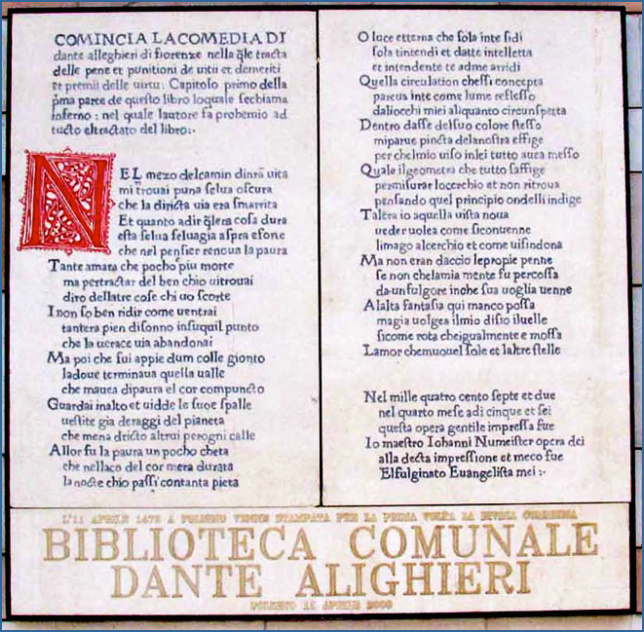 COMINCIA LACOMEDIA DI
dante alleghieri di fiorenze nella q̃le tracta
delle pene et punitioni de uitii et demeriti
et premii delle uirtu: Capitolo primo della
p̃ma parte de questo libro loquale sechiama
inferno : nel quale lautore fa prohemio ad
tucto eltractato del libro:·
NEL mezo delcamin dinr̃a uita
mi trouai puna selua oscura
che la diricta uia era smarrita
Et quanto adir q̃lera cosa dura
esta selua seluagia aspra eforte
che nel pensier renoua la paura
Tante amara che pocho piu morte
ma pertractar del ben chio uitrouai
diro dellatre cose chi uo scorte
I non so ben ridir come uentrai
tantera pien disonno insuquil punto
che la uerace uia abandonai
Ma poi che fui appie dum colle gionto
ladoue terminaua quella ualle
che mauea dipaura el cor compuncto
Guardai inalto et uidde le suoe spalle
uestite gia deraggi del pianeta
che mena dricto altrui perogni calle
Allor fu la paura un pocho cheta
che nellaco del cor mera durata
la nocte chio passi contanta pieta
O luce etterna che sola inte sidi
sola tintendi et datte intelletta
et intendente te adme arridi
Quella circulation chessi concepta
pareua inte come lume reflesso
daliocchi miei aliquanto circunspetta
Dentro dasse delsuo colore stesso
miparue pincta delanostra effige
per chelmio uiso inlei tutto auea messo
Quale ilgeometra che tutto saffige
permisurar locerchio et non ritroua
pensando quel principio ondelli indige
Talera io aquella uista noua
ueder uolea come siconuenne
limago alcerchio et come uisindona
Ma non eran daccio lepropie penne
se non chelamia mente fu percossa
da un fulgore inche sua uoglia uenne
Alalta fantasia qui manco possa
magia uolgea ilmio disio iluelle
sicome rota cheigualmente e mossa
Lamor chemuouel sole et laltre stelle
Nel mille quatro cento septe et due
nel quarto mese adi cinque et sei
questa opera gentile impressa fue
Io maestro Iohanni Numeister opera dei
alla decta impressione et meco fue
Elfulginato Euangelista mei :·
L'11 APRILE 1472 A FOLIGNO VENNE STAMPATA PER LA PRIMA VOLTA LA DIVINA COMMEDIA
BIBLIOTECA COMUNALE
DANTE ALIGHIERI
FOLIGNO 11 APRILE 2000